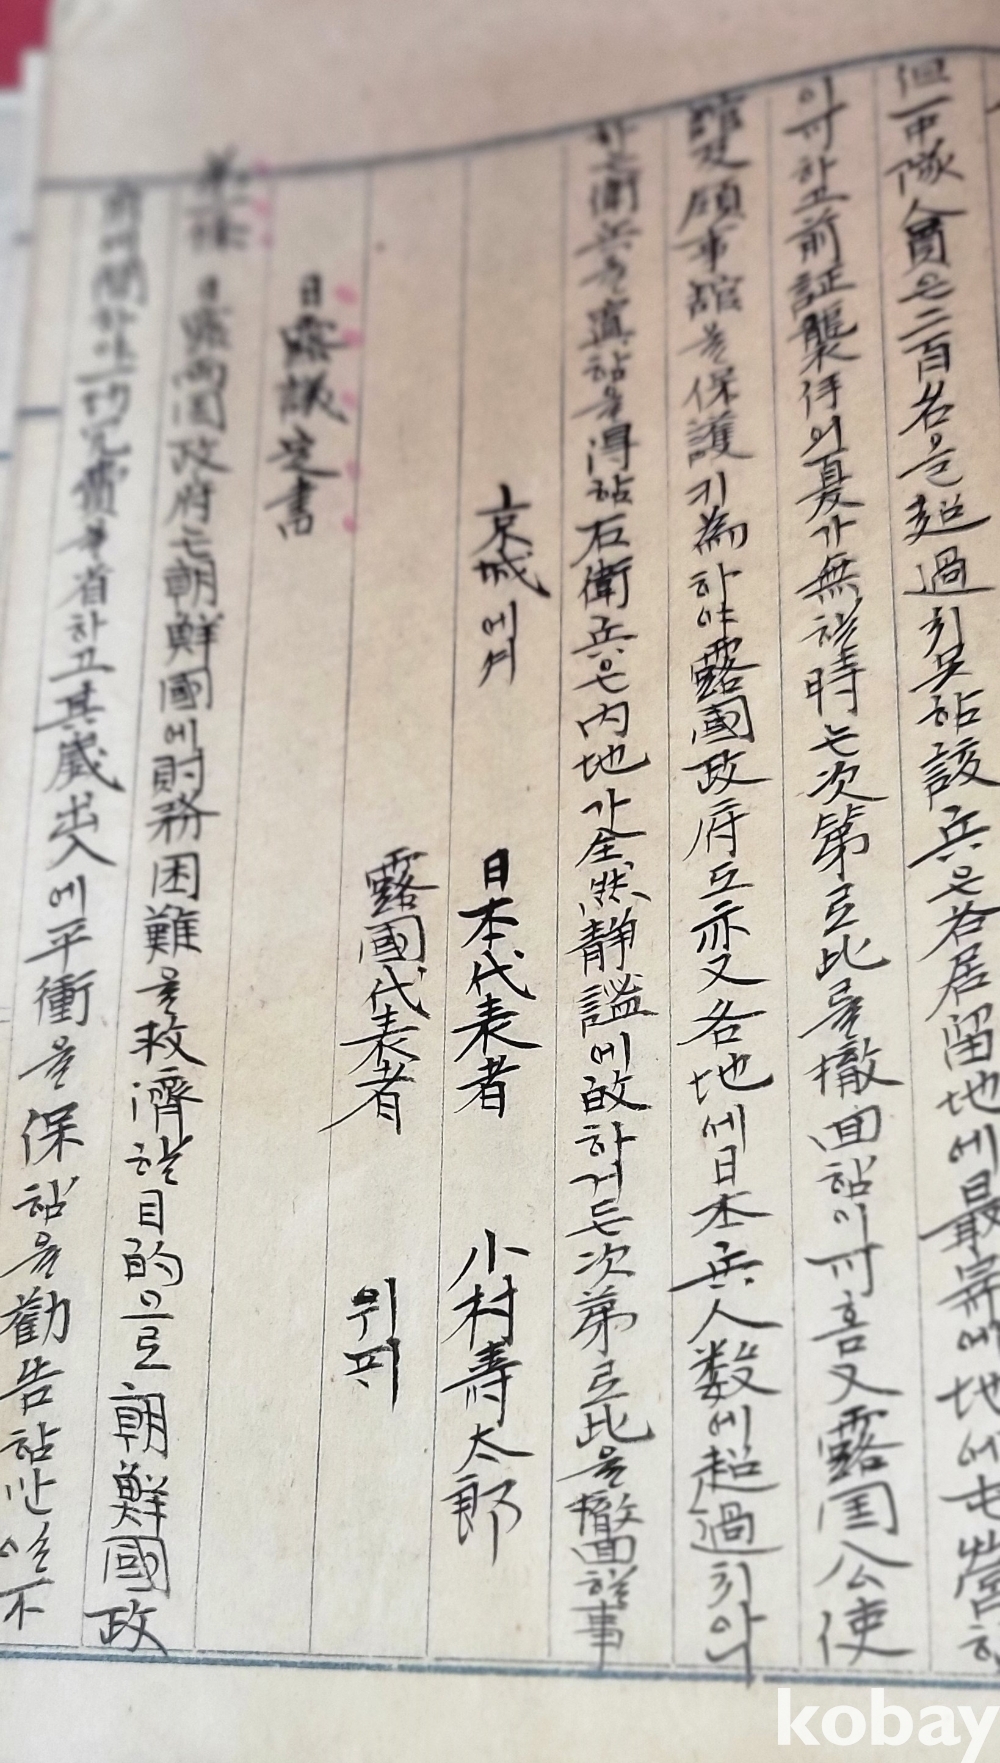 但一中隊人員은二百名을超過치못하고該兵은各居留地에最寄에地에屯營하
이可하고前証襲侍의憂가無할時는次第로此를撤回함이可홈又露国公使
館及領事館을保護키為하야露國政府도亦又各地에日本兵人数에超過치아니
하는衛兵을置함을得함右衛兵은内地가全然静謐에故하거든次第로此을撤回할事
京城에셔
日本代表者 小村寿太郎
露國代表者 위피
日露議定書
第一條 日露両國政府는朝鮮國에財務困難을救濟할目的으로朝鮮國政
府에間하야一切冗費를省하고其歳出入에平衝을保함을勸告함만일不
kobay